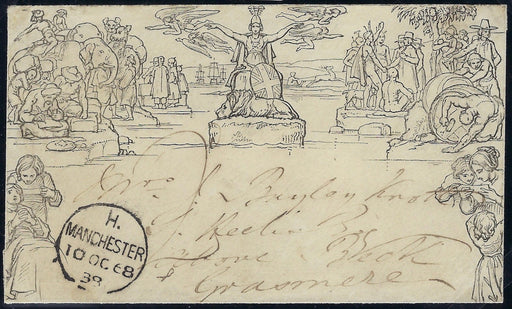 H.
MANCHESTER
10 OC 68
38
Mrs J. Bayley
J.
Beck
Grasmere